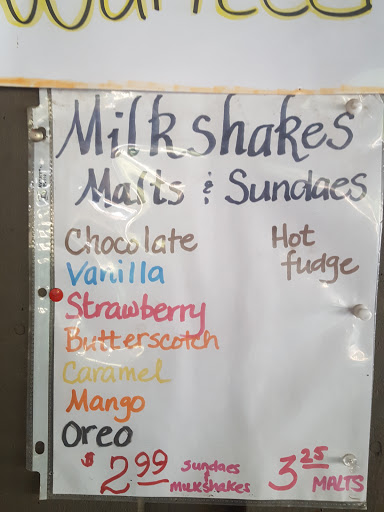 Milkshakes
Malts & Sundaes
Chocolate
Hot
fudge
Vanilla
Strawberry
Butterscotch
Caramel
Mango
Oreo
$2.99 Sundaes & Milkshakes
3.25 MALTS